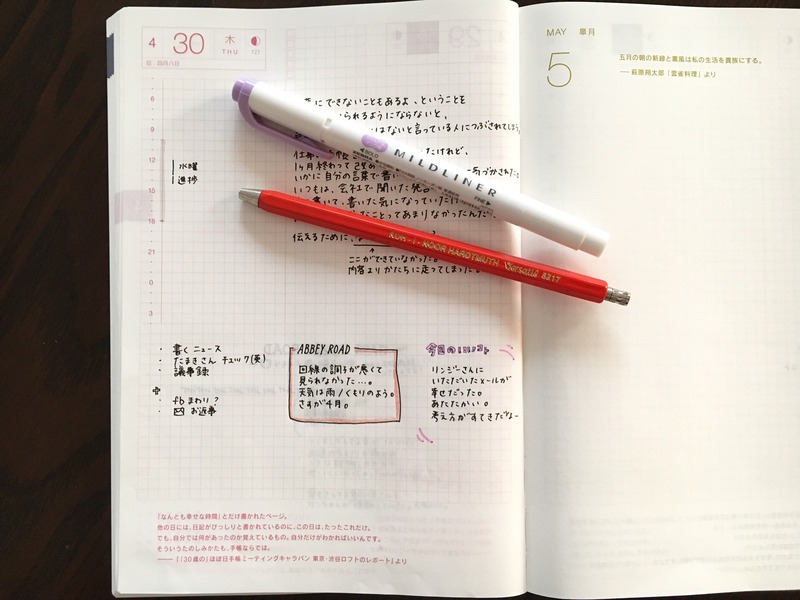 4
30
木
THU
121
6
9
12
15
18
21
0
3
水曜
進捗
にできないこともあるよ、ということを
られるようにならないと、
はないと言っている人につぶされてしまう
たけれど、
1ヶ月終わって
いかに自分の言葉で書い
いつもは、会社で聞いた
書いて、書いた気になっていた
ことってあまりなかったんだ
伝えるために、
ここができていなかった。
内容よりかたちに走ってしまった
MILDLINER
FINE
KOH-I-NOOR HARDTMUTH Versatil 5217
・書くニュース
・たまきさん チェック(英)
・議事録
・fbまわり?
・お返事
ABBEY ROAD
回線の調子が悪くて
見られなかった…。
天気は雨/くもりのよう。
さすが4月。
今日の
リンジーさんに
いただいたメールが
幸せだった。
あたたかい。
考え方がすてきだなー
「なんとも幸せな時間」とだけ書かれたページ。
他の日には、日記がびっしりと書かれているのに、この日は、たったこれだけ。
でも、自分では何があったのか覚えているもの。自分だけがわかればいいんです。
そういうたのしみかたも、手帳ならでは。
——『〈30歳の〉ほぼ日手帳ミーティングキャラバン 東京・渋谷ロフトのレポート』より
MAY 皐月
5
五月の朝の新緑と薫風は私の生活を貴族にする。
—— 萩原朔太郎「雲雀料理」より